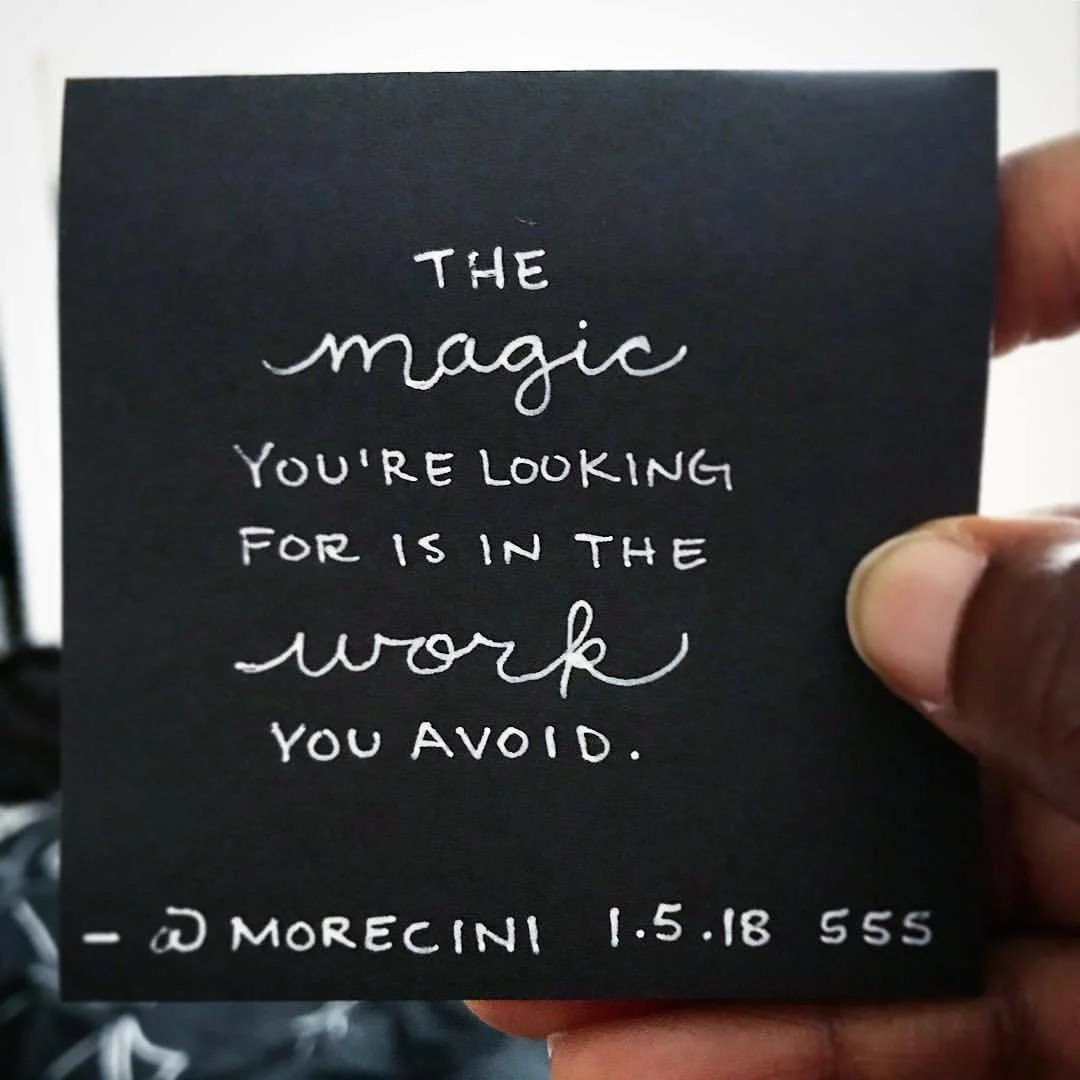 THE
magic
YOU'RE LOOKING
FOR IS IN THE
work
YOU AVOID.
- @MORECINI 1.5.18 555